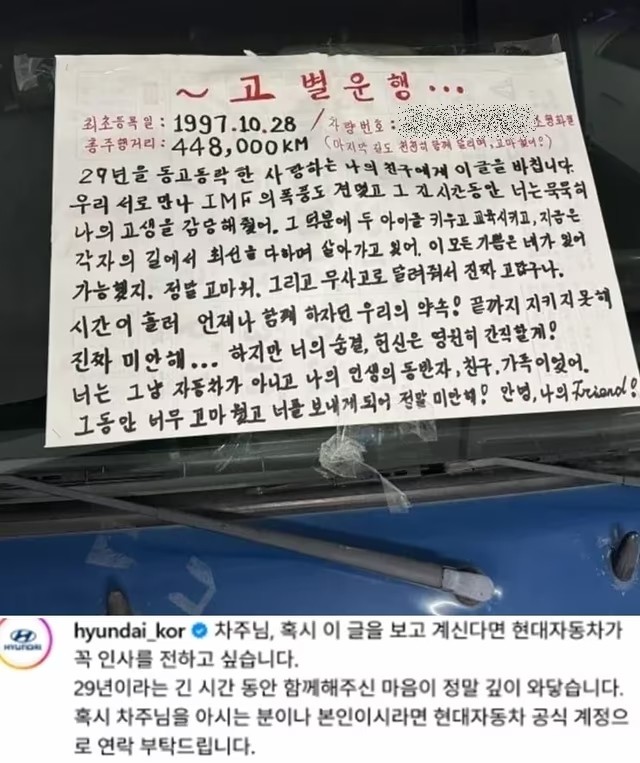 ~ 고 별 운 행 ...
최초등록일 : 1997.10.28 / 차량번호 :
총주행거리 : 448,000KM (마지막 길도 천천히 함께 달리며, 고마웠어!)
29년을 동고동락 한 사랑하는 나의 친구에게 이 글을 바칩니다.
우리 서로 만나 IMF의 폭풍도 견뎠고 그 긴 시간동안 너는 묵묵히
나의 고생을 감당해 줬어. 그 덕분에 두 아이를 키우고 교육시키고, 지금은
각자의 길에서 최선을 다하며 살아가고 있어. 이 모든 기쁨은 네가 있어
가능했지. 정말 고마워. 그리고 무사고로 달려줘서 진짜 고맙구나.
시간이 흘러 언제나 함께 하자던 우리의 약속! 끝까지 지키지 못해
진짜 미안해... 하지만 너의 숨결, 헌신은 영원히 간직할게!
너는 그냥 자동차가 아니고 나의 인생의 동반자, 친구, 가족이었어.
그동안 너무 고마웠고 너를 보내게 되어 정말 미안해! 안녕, 나의 Friend!
HYUNDAI
hyundai_kor 차주님, 혹시 이 글을 보고 계신다면 현대자동차가
꼭 인사를 전하고 싶습니다.
29년이라는 긴 시간 동안 함께해주신 마음이 정말 깊이 와닿습니다.
혹시 차주님을 아시는 분이나 본인이시라면 현대자동차 공식 계정으
로 연락 부탁드립니다.